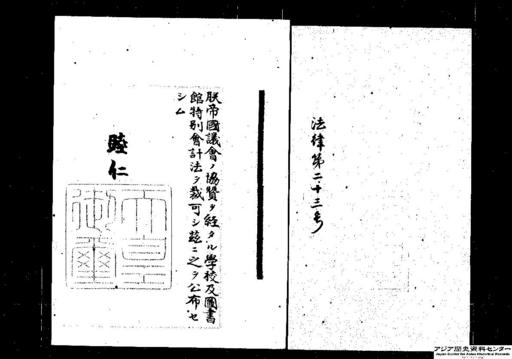 法律第二十三号
朕帝國議會ノ協賛ヲ經タル學校及圖書
館特別會計法ヲ裁可シ茲ニ之ヲ公布セ
シム
睦仁
天皇
御璽
アジア歴史資料センター
Japan Center for Asian Historical Records